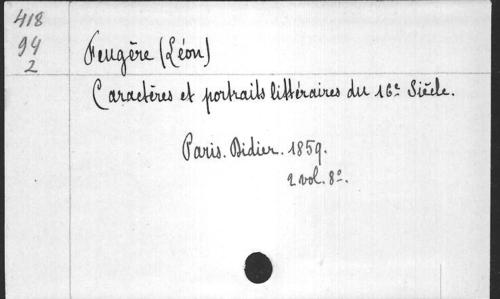 418
94
2
Feugère (Léon)
Caractères et portraits littéraires du 16e Siècle.
Paris. Didier. 1859.
2 vol. 8o.